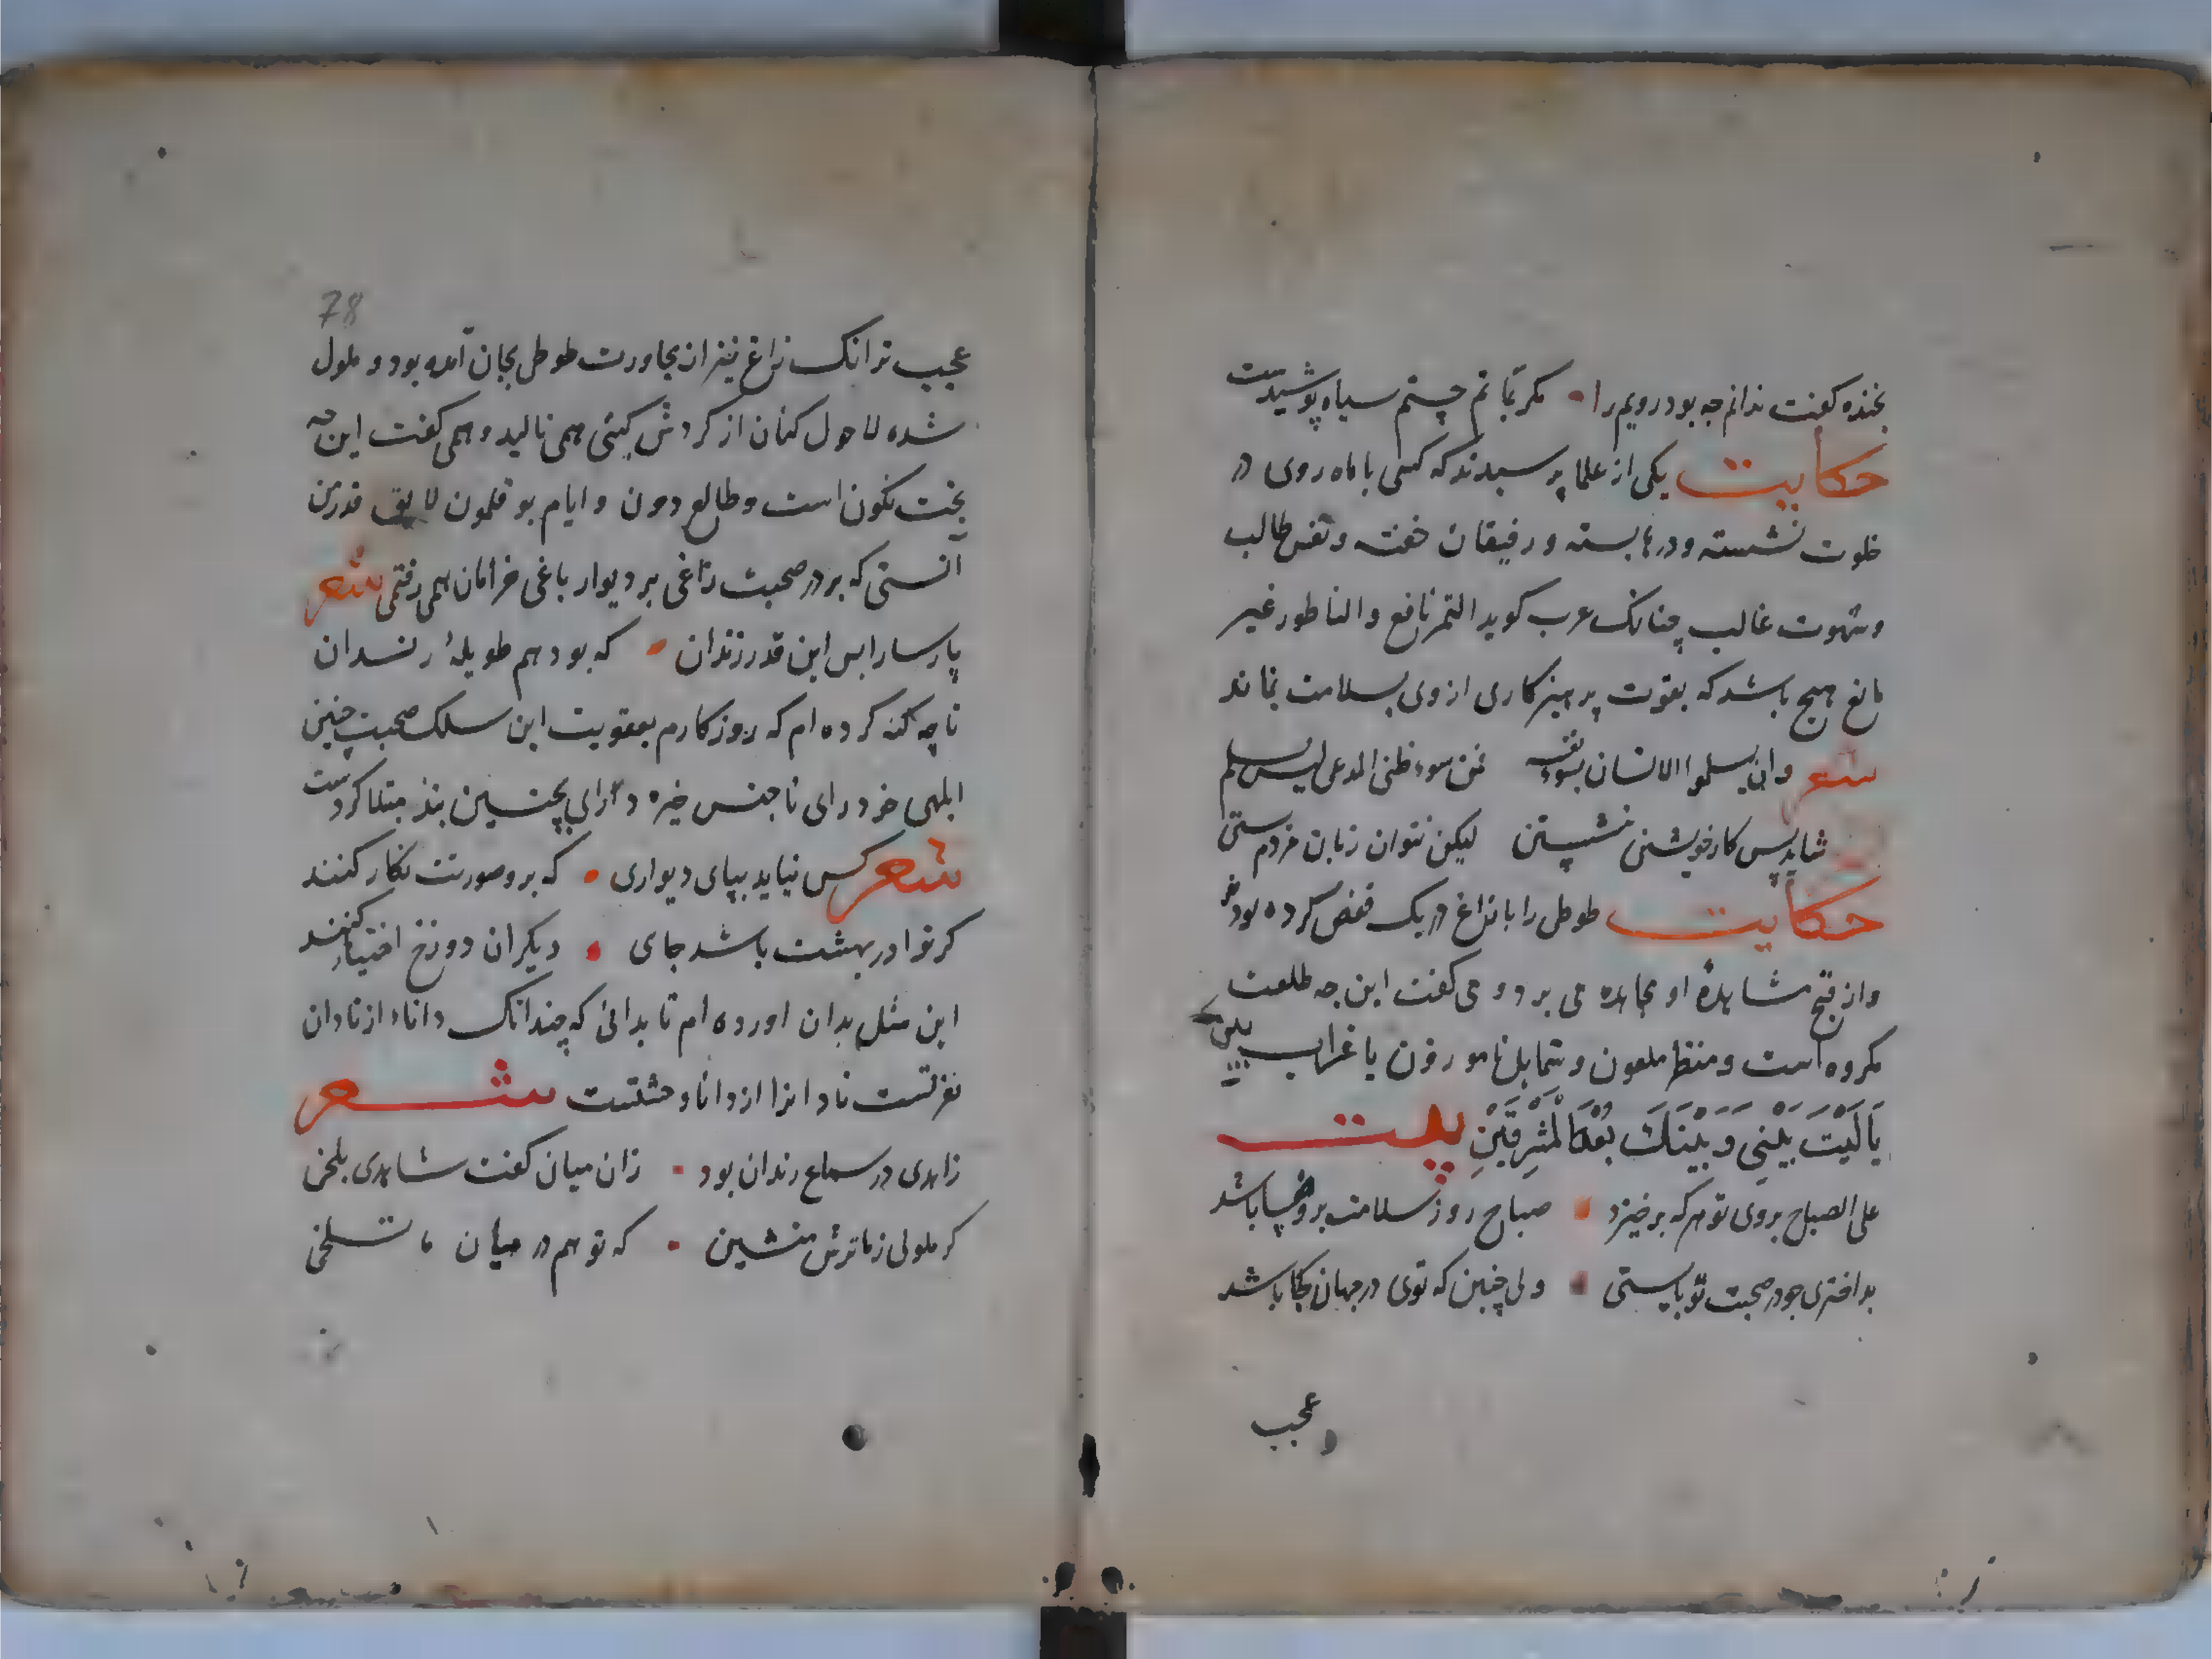 بخنده کفت ندانم جه بود رویم را • مکر بماتم چشم سیاه پوشیدست
حکایت یکی از علما پرسیدند که کسی با ماه روی در
خلوت نشسته و درها بسته و رفیقان خفته و نفس طالب
و شهوت غالب چنانک عرب کوید التمر نافع والناطور غیر
مانع هیچ باشد که بقوت پرهیزکاری از وی بسلامت بماند
شعر وان یسلموا الانسان بسوء نفسه فمن سوء ظنی المدعی لیس یسلم
شاید پس کار خویشتن نشستن لیکن نتوان زبان مردم بستن
حکایت طوطی را با زاغ در یک قفص کرده بودند
و از قبح مشاهدهٔ او مجاهده می برد و می کفت این جه طلعت
مکروه است و منظر ملعون و شمایل ناموزون یا غراب البین
یَا لَیْتَ بَیْنِی وَ بَیْنَکَ بُعْدَ الْمَشْرِقَیْنِ بیت
علی الصباح بروی تو هرکه برخیزد • صباح روز سلامت برو مسا باشد
بد اختری جو در صحبت تو بایستی • ولی چنین که توی در جهان کجا باشد
و عجب
78
عجب تر انک زاغ نیز از مجاورت طوطی بجان آمده بود و ملول
شده لا حول کنان از کردش کیتی همی نالید و همی کفت این چه
بخت نکون است و طالع دون و ایام بوقلمون لایق قدر من
آنستی که بر در صحبت زاغی بر دیوار باغی خرامان همی رفتمی شعر
پارسا را بس این قدر زندان • که بود هم طویلهٔ رندان
تا چه کنه کرده ام که روزکارم بعقوبت این سلک صحبت چنین
ابلهی خود رای نا جنس خیره درای بچنین بند مبتلا کردست
شعر کس نیاید بپای دیواری • که برو صورتت نکار کنند
کر ترا در بهشت باشد جای • دیکران دوزخ اختیار کنند
این مثل بدان اورده ام تا بدانی که چندانک دانا را از نادان
نفرتست نادانرا از دانا وحشتست شعر
زاهدی در سماع رندان بود • زان میان کفت شاهدی بلخی
کر ملولی ز ما ترش منشین • که تو هم در میان ما تلخی